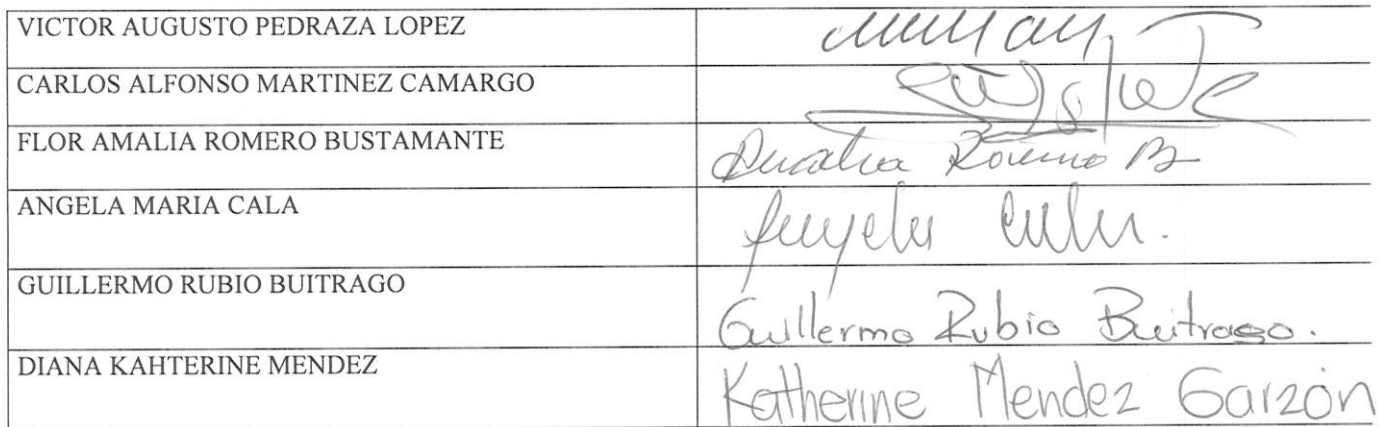 VICTOR AUGUSTO PEDRAZA LOPEZ
CARLOS ALFONSO MARTINEZ CAMARGO
FLOR AMALIA ROMERO BUSTAMANTE
Amalia Romero B
ANGELA MARIA CALA
Angela Cala.
GUILLERMO RUBIO BUITRAGO
Guillermo Rubio Buitrago.
DIANA KAHTERINE MENDEZ
Katherine Mendez Garzón